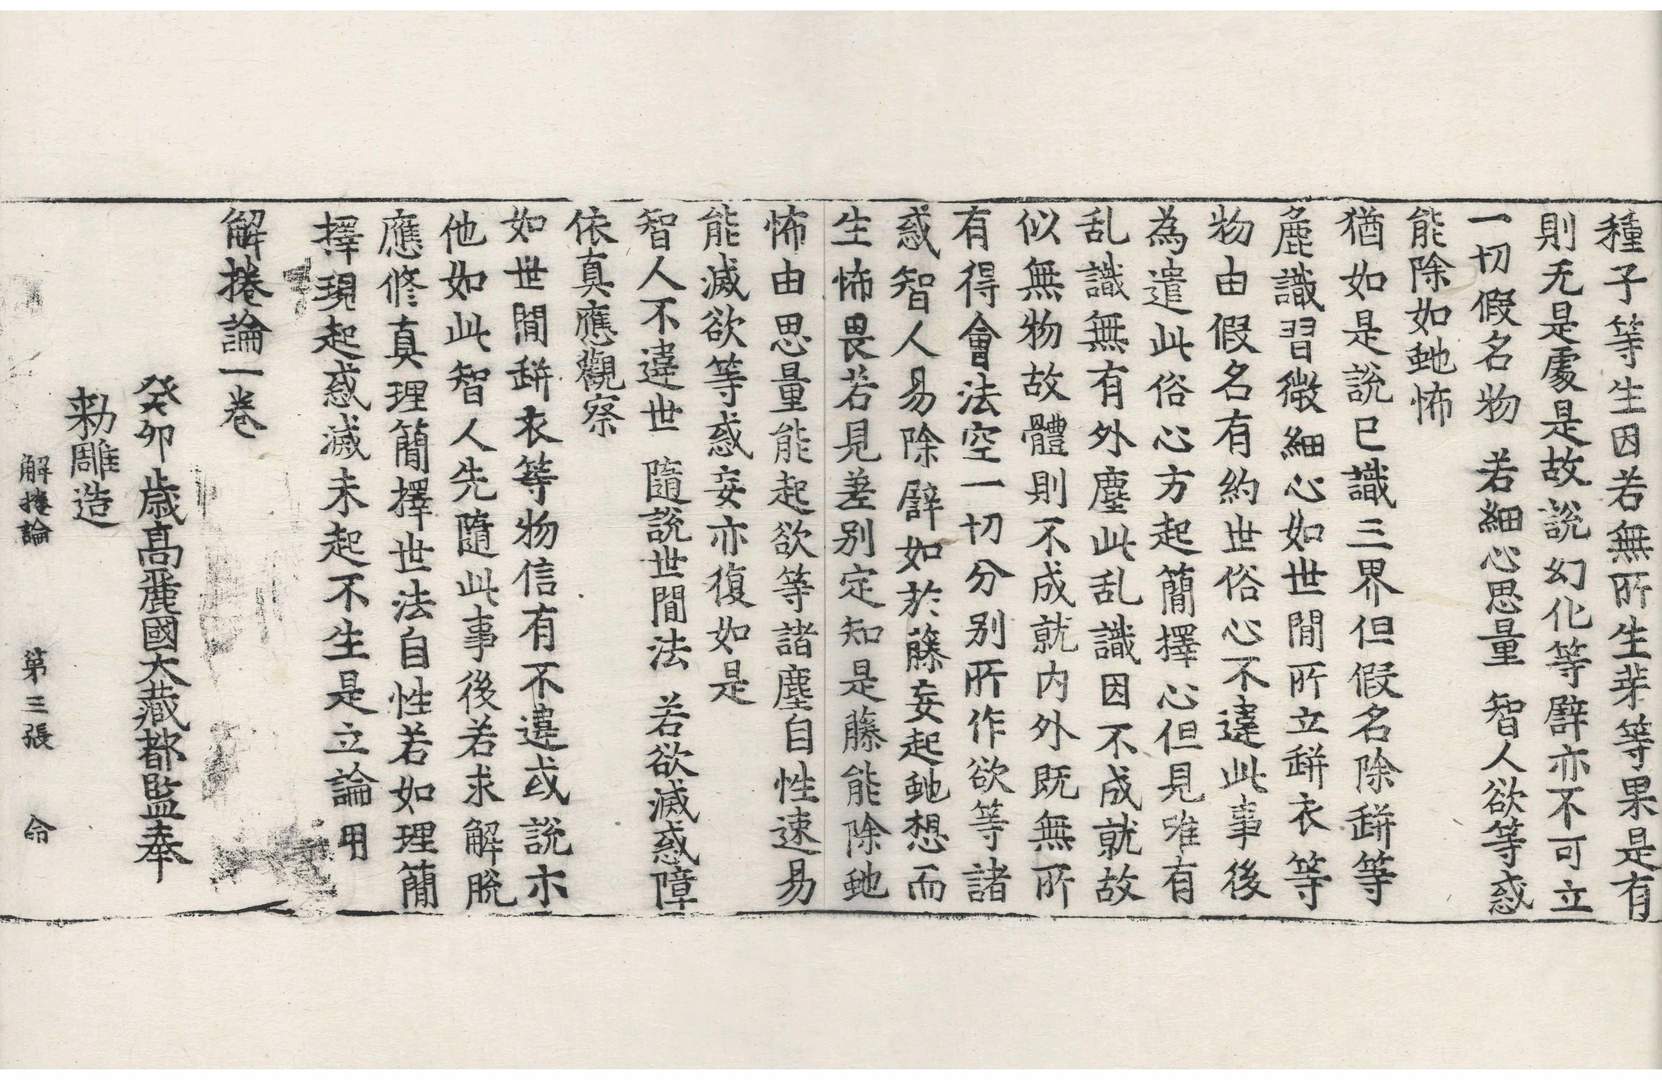 種子等生因若無所生芽等果是有
則无是處是故說幻化等譬亦不可立
一切假名物 若細心思量 智人欲等惑
能除如虵怖
猶如是說已識三界但假名除缾等
麁識習微細心如世閒所立缾衣等
物由假名有約世俗心不違此事後
為遣此俗心方起簡擇心但見唯有
乱識無有外塵此乱識因不成就故
似無物故體則不成就内外既無所
有得會法空一切分别所作欲等諸
惑智人易除譬如於藤妄起虵想而
生怖畏若見差别定知是藤能除虵
怖由思量能起欲等諸塵自性速易
能滅欲等惑妄亦復如是
智人不違世 隨說世閒法 若欲滅惑障
依真應觀察
如世閒缾衣等物信有不違或說亦
他如此智人先隨此事後若求解脫
應修真理簡擇世法自性若如理簡
擇現起惑滅未起不生是立論用
解捲論一卷
癸卯歲高麗國大藏都監奉
勑雕造
解捲論 第三張 命